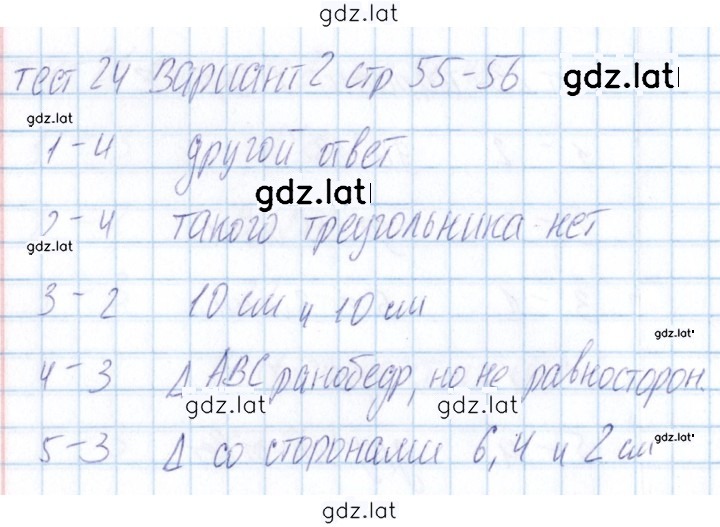 gdz.lat
тест 24 вариант 2 стр 55-56
gdz.lat
gdz.lat
1-4 другой ответ
gdz.lat
2-4 такого треугольника нет
gdz.lat
3-2 10 см и 10 см
gdz.lat
4-3 Δ ABC ранобедр, но не равносторон.
gdz.lat gdz.lat
5-3 Δ со сторонами 6, 4 и 2 см
gdz.lat
gdz.lat